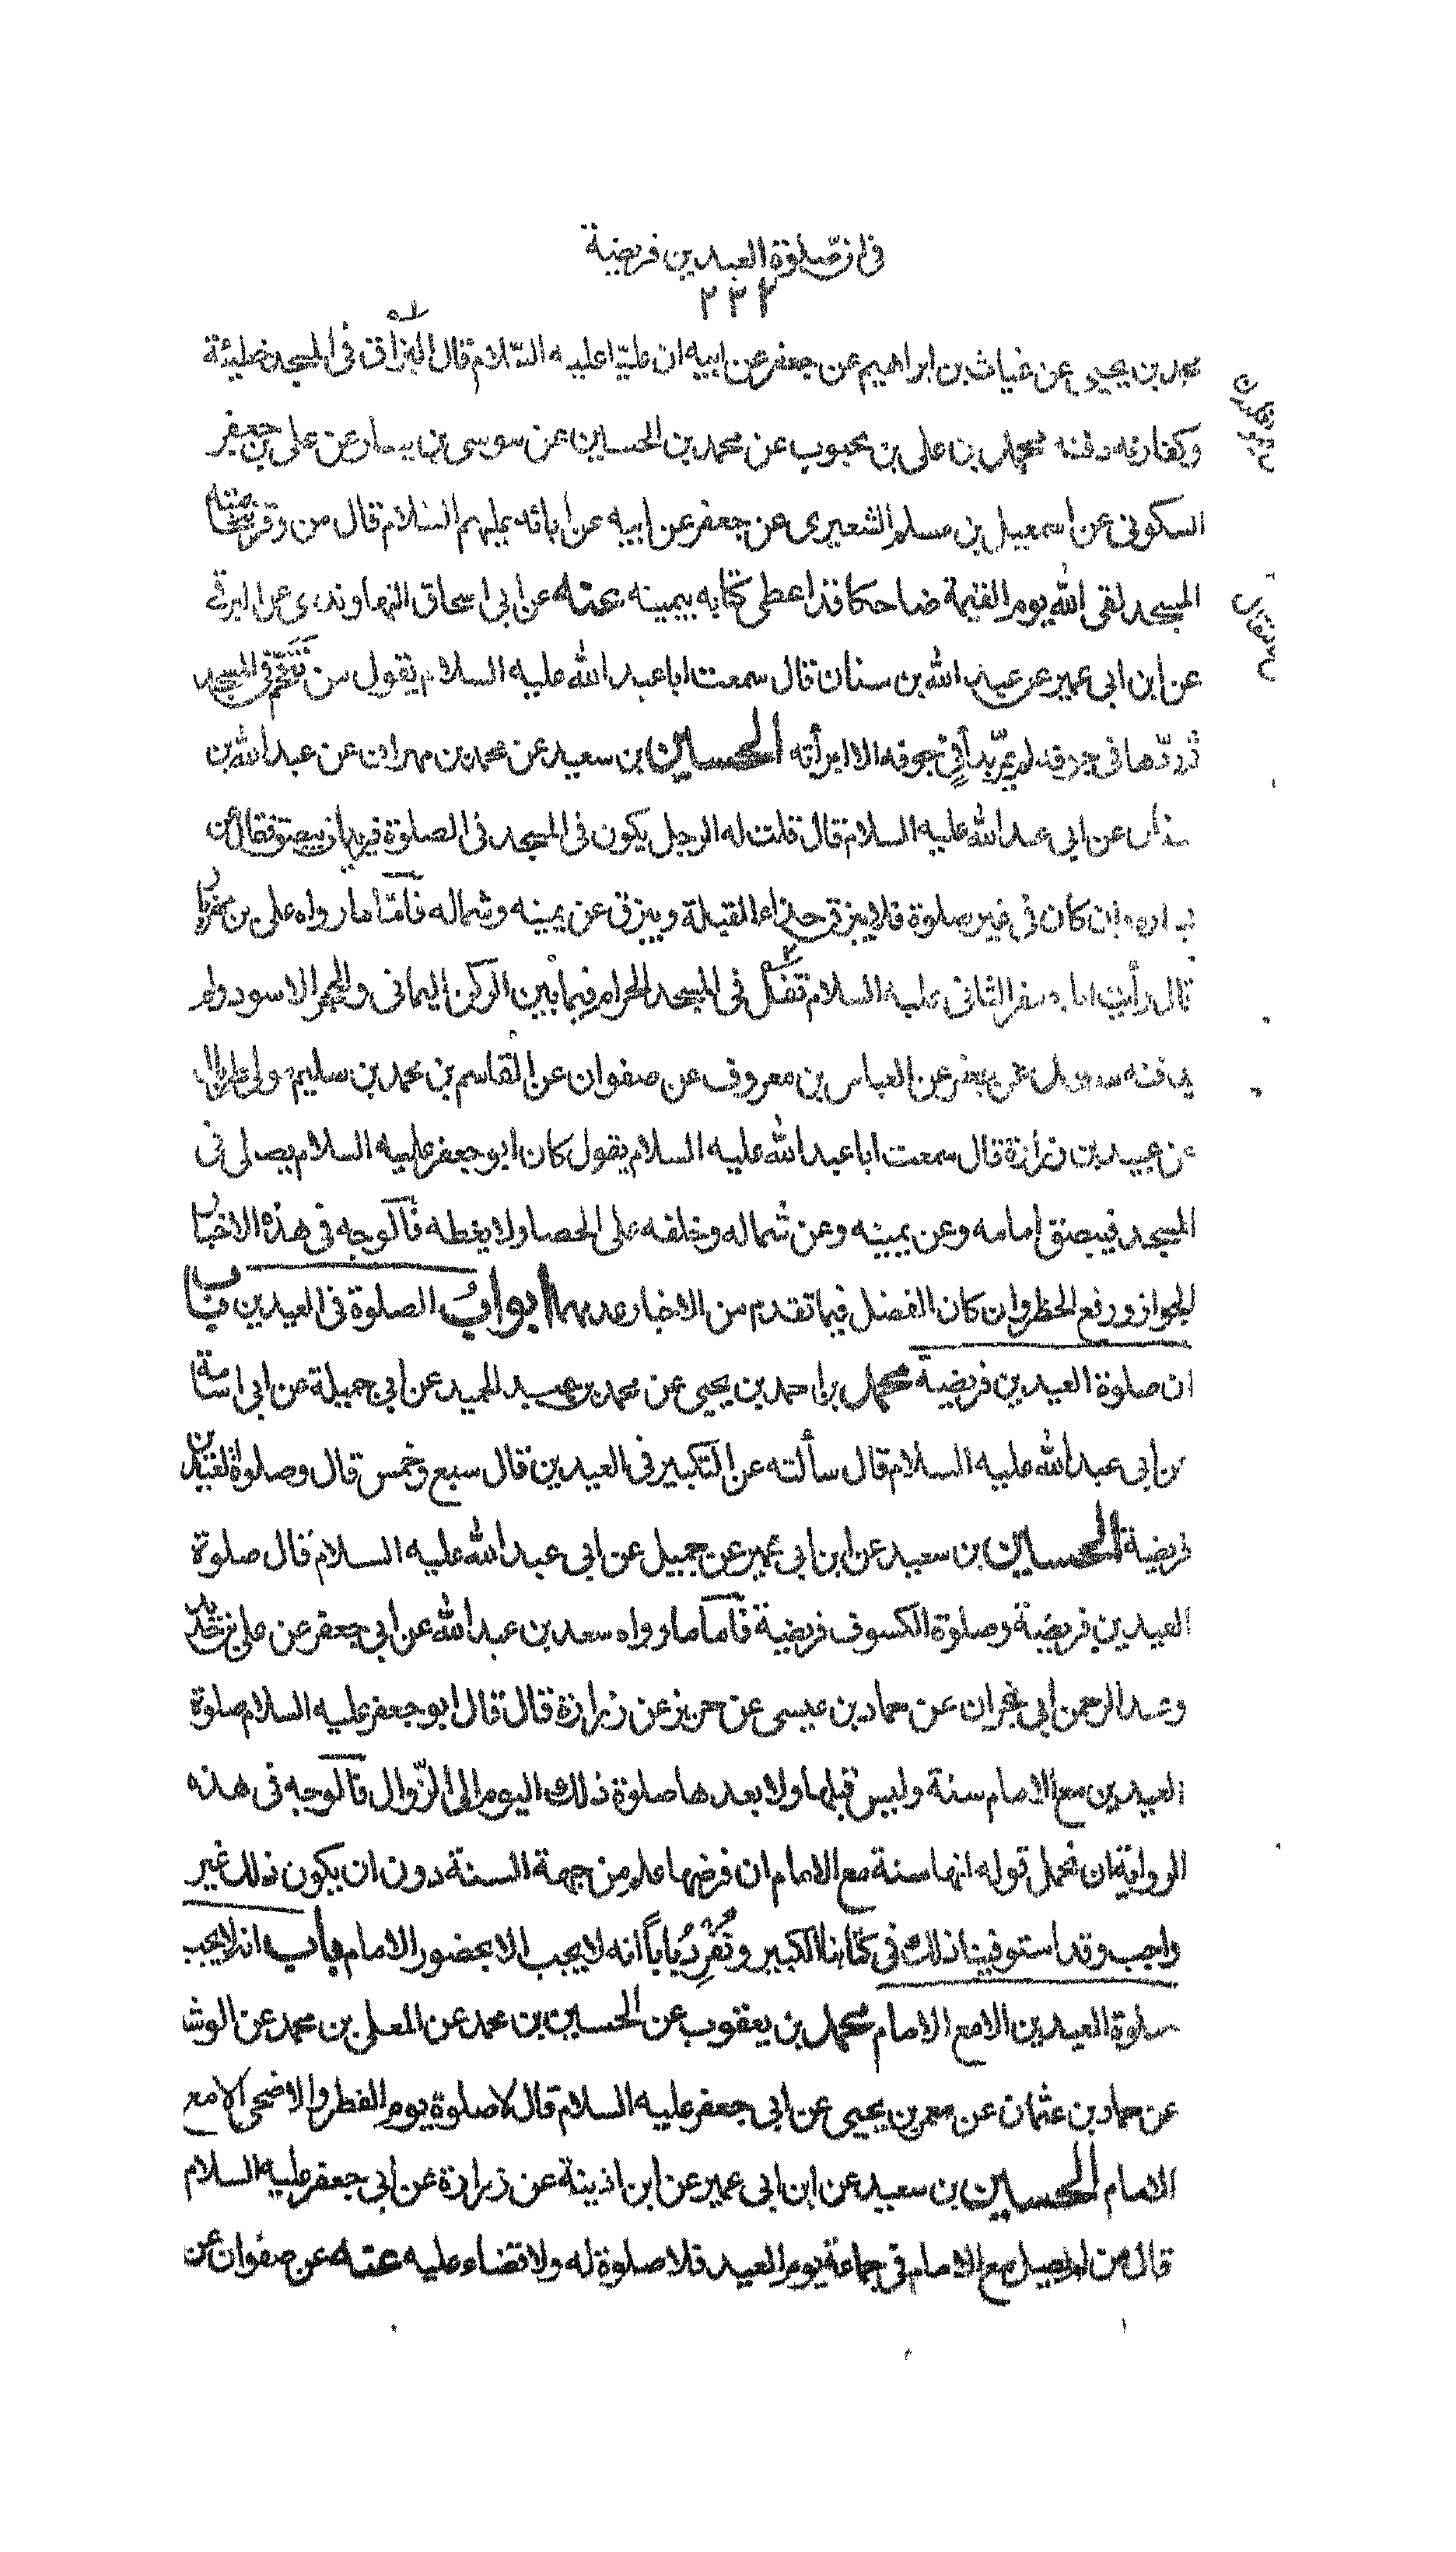 في ان صلوة العيدين فريضة
٢٣٢
محمد بن يحيى عن غياث بن ابراهيم عن جعفر عن ابيه ان عليّا عليه السّلام قال البزاق في المسجد خطيئة
وكفارته دفنه محمد بن علي بن محبوب عن محمد بن الحسين عن موسى بن يسار عن علي بن جعفر
السكوني عن اسمعيل بن مسلم الشعيري عن جعفر عن ابيه عن ابائه عليهم السلام قال من وقر بنخامته
المسجد لقى الله يوم القيمة ضاحكا قد اعطى كتابه بيمينه عنه عن ابي اسحاق النهاوندي عن البرقي
عن ابن ابي عمير عن عبد الله بن سنان قال سمعت ابا عبد الله عليه السلام يقول من تنخّم في المسجد
ثم ردّها في جوفه لم تمرّ بداء في جوفه الا ابرأته الحسين بن سعيد عن محمد بن مهران عن عبد الله بن
سنان عن ابي عبد الله عليه السلام قال قلت له الرجل يكون في المسجد في الصلوة فيريد ان يبصق فقال عن
يساره وان كان في غير صلوة فلا يبزق حذاء القبلة ويبزق عن يمينه وشماله فامّا ما رواه علي بن مهزيار
قال رأيت ابا جعفر الثاني عليه السلام تفل في المسجد الحرام فيما بين الركن اليماني والحجر الاسود ولم
يدفنه سعد عن ابي جعفر عن العباس بن معروف عن صفوان عن القاسم بن محمد بن سليمن مولى طربال
عن عبيد بن زرارة قال سمعت ابا عبد الله عليه السلام يقول كان ابو جعفر عليه السلام يصلي في
المسجد فيبصق امامه وعن يمينه وعن شماله وخلفه على الحصا ولا يغطه فالوجه في هذه الاخبار
الجواز ورفع الحظر وان كان الفضل فيما تقدم من الاخبار ابواب الصلوة في العيدين باب
ان صلوة العيدين فريضة محمد بن احمد بن يحيى عن محمد بن عبد الحميد عن ابي جميلة عن ابي اسامة
عن ابي عبد الله عليه السلام قال سألته عن التكبير في العيدين قال سبع وخمس قال وصلوة العيدين
فريضة الحسين بن سعيد عن ابن ابي عمير عن جميل عن ابي عبد الله عليه السلام قال صلوة
العيدين فريضة وصلوة الكسوف فريضة فاما ما رواه سعد بن عبد الله عن ابي جعفر عن علي بن حديد
وعبد الرحمن ابي نجران عن حماد بن عيسى عن حريز عن زرارة قال قال ابو جعفر عليه السلام صلوة
العيدين مع الامام سنة وليس قبلها ولا بعدها صلوة ذلك اليوم الى الزّوال فالوجه في هذه
الرواية ان نحمل قوله انها سنة مع الامام ان فرضها علم من جهة السنة دون ان يكون ذلك غير
واجب وقد استوفينا ذلك في كتابنا الكبير ونُفْرِدُ باباً انه لا يجب الا بحضور الامام باب انه لا يجب
صلوة العيدين الا مع الامام محمد بن يعقوب عن الحسين بن محمد عن المعلى بن محمد عن الوشا
عن حماد بن عثمان عن معمر بن يحيى عن ابي جعفر عليه السلام قال لا صلوة يوم الفطر والاضحى الا مع
الامام الحسين بن سعيد عن ابن ابي عمير عن ابن اذينة عن زرارة عن ابي جعفر عليه السلام
قال من لم يصل مع الامام في جماعة يوم العيد فلا صلوة له ولا قضاء عليه عنه عن صفوان عن